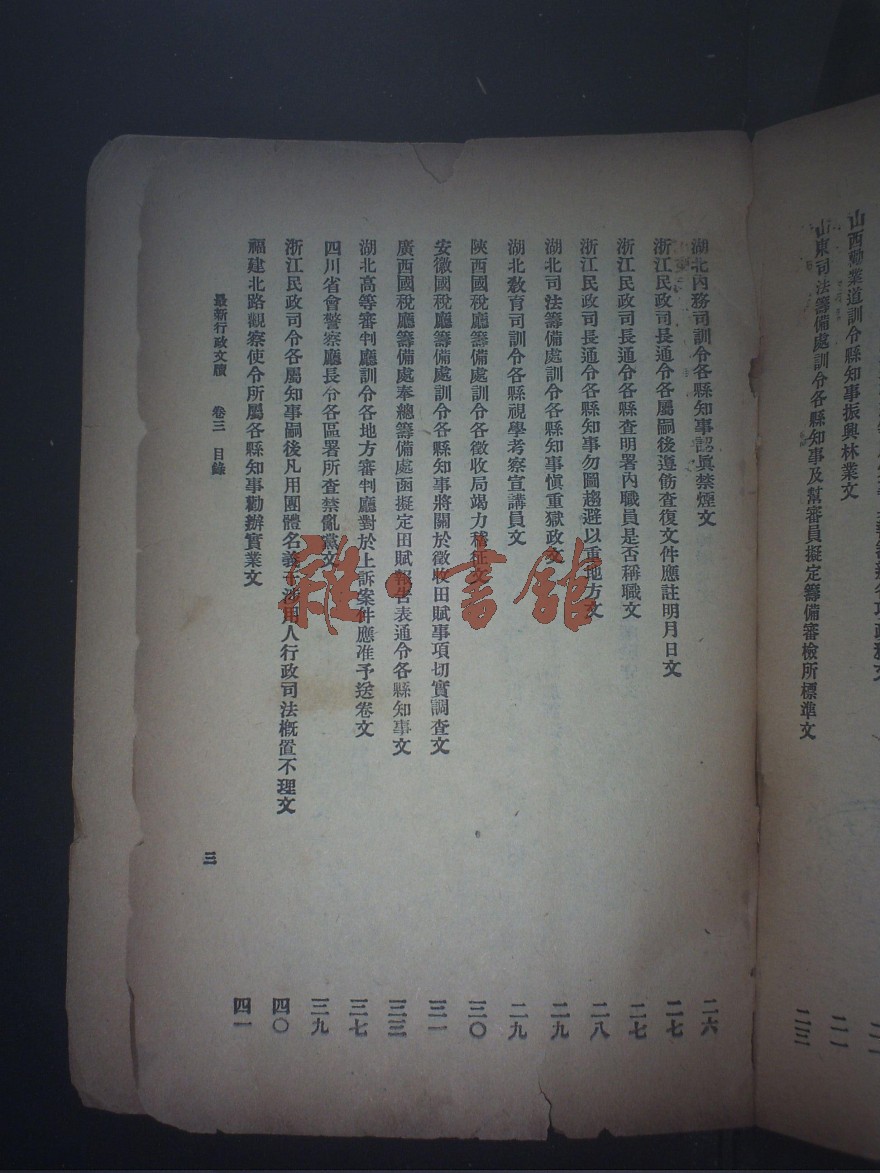 山西勸業道訓令縣知事振興林業文 二一
山東司法籌備處訓令各縣知事及幫審員擬定籌備審檢所標準文 二三
湖北內務司訓令各縣知事認眞禁煙文 二六
浙江民政司長通令各屬嗣後遵飭查復文件應註明月日文 二七
浙江民政司長通令各縣查明署內職員是否稱職文 二七
浙江民政司長通令各縣知事勿圖趨避以重地方文 二八
湖北司法籌備處訓令各縣知事愼重獄政文 二九
湖北敎育司訓令各縣視學考察宣講員文 二九
陝西國稅廳籌備處訓令各徵收局竭力稽征文 三〇
安徽國稅廳籌備處訓令各縣知事將關於徵收田賦事項切實調查文 三一
廣西國稅廳籌備處奉總籌備處函擬定田賦報告表通令各縣知事文 三三
湖北高等審判廳訓令各地方審判廳對於上訴案件應准予送卷文 三七
四川省會警察廳長令各區署所查禁亂黨文 三九
浙江民政司令各屬知事嗣後凡用團體名義干涉用人行政司法槪置不理文 四〇
福建北路觀察使令所屬各縣知事勸辦實業文 四一
最新行政文牘 卷三 目錄 三
雜·書館